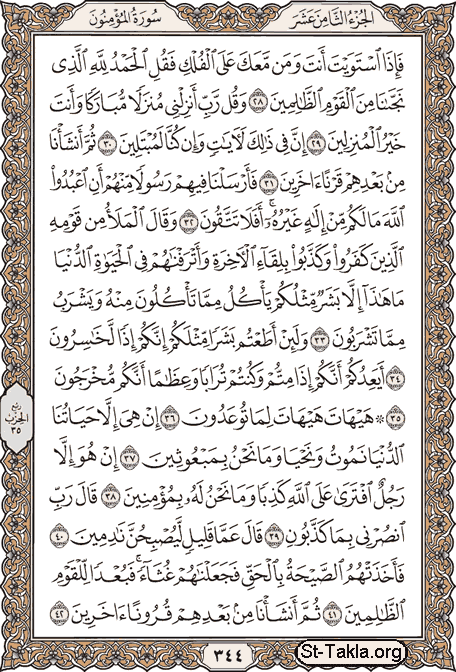 الجُزءُ الثَّامِن عَشَر
سُورَةُ المُؤمِنُون
فَإِذَا ٱسْتَوَيْتَ أَنتَ وَمَن مَّعَكَ عَلَى ٱلْفُلْكِ فَقُلِ ٱلْحَمْدُ لِلَّهِ ٱلَّذِى
نَجَّىٰنَا مِنَ ٱلْقَوْمِ ٱلظَّـٰلِمِينَ ٢٨ وَقُل رَّبِّ أَنزِلْنِى مُنزَلًا مُّبَارَكًا وَأَنتَ
خَيْرُ ٱلْمُنزِلِينَ ٢٩ إِنَّ فِى ذَٰلِكَ لَـَٔايَـٰتٍ وَإِن كُنَّا لَمُبْتَلِينَ ٣٠ ثُمَّ أَنشَأْنَا
مِنۢ بَعْدِهِمْ قَرْنًا ءَاخَرِينَ ٣١ فَأَرْسَلْنَا فِيهِمْ رَسُولًا مِّنْهُمْ أَنِ ٱعْبُدُوا۟
ٱللَّهَ مَا لَكُم مِّنْ إِلَـٰهٍ غَيْرُهُۥٓ ۖ أَفَلَا تَتَّقُونَ ٣٢ وَقَالَ ٱلْمَلَأُ مِن قَوْمِهِ
ٱلَّذِينَ كَفَرُوا۟ وَكَذَّبُوا۟ بِلِقَآءِ ٱلْـَٔاخِرَةِ وَأَتْرَفْنَـٰهُمْ فِى ٱلْحَيَوٰةِ ٱلدُّنْيَا
مَا هَـٰذَآ إِلَّا بَشَرٌ مِّثْلُكُمْ يَأْكُلُ مِمَّا تَأْكُلُونَ مِنْهُ وَيَشْرَبُ
مِمَّا تَشْرَبُونَ ٣٣ وَلَئِنْ أَطَعْتُم بَشَرًا مِّثْلَكُمْ إِنَّكُمْ إِذًا لَّخَـٰسِرُونَ
٣٤ أَيَعِدُكُمْ أَنَّكُمْ إِذَا مِتُّمْ وَكُنتُمْ تُرَابًا وَعِظَـٰمًا أَنَّكُم مُّخْرَجُونَ
٣٥ ۞ هَيْهَاتَ هَيْهَاتَ لِمَا تُوعَدُونَ ٣٦ إِنْ هِىَ إِلَّا حَيَاتُنَا
ٱلدُّنْيَا نَمُوتُ وَنَحْيَا وَمَا نَحْنُ بِمَبْعُوثِينَ ٣٧ إِنْ هُوَ إِلَّا
رَجُلٌ ٱفْتَرَىٰ عَلَى ٱللَّهِ كَذِبًا وَمَا نَحْنُ لَهُۥ بِمُؤْمِنِينَ ٣٨ قَالَ رَبِّ
ٱنصُرْنِى بِمَا كَذَّبُونِ ٣٩ قَالَ عَمَّا قَلِيلٍ لَّيُصْبِحُنَّ نَـٰدِمِينَ ٤٠
فَأَخَذَتْهُمُ ٱلصَّيْحَةُ بِٱلْحَقِّ فَجَعَلْنَـٰهُمْ غُثَآءً ۚ فَبُعْدًا لِّلْقَوْمِ
ٱلظَّـٰلِمِينَ ٤١ ثُمَّ أَنشَأْنَا مِنۢ بَعْدِهِمْ قُرُونًا ءَاخَرِينَ ٤٢
ربع
الحزب
٣٥
٣٤٤
St-Takla.org